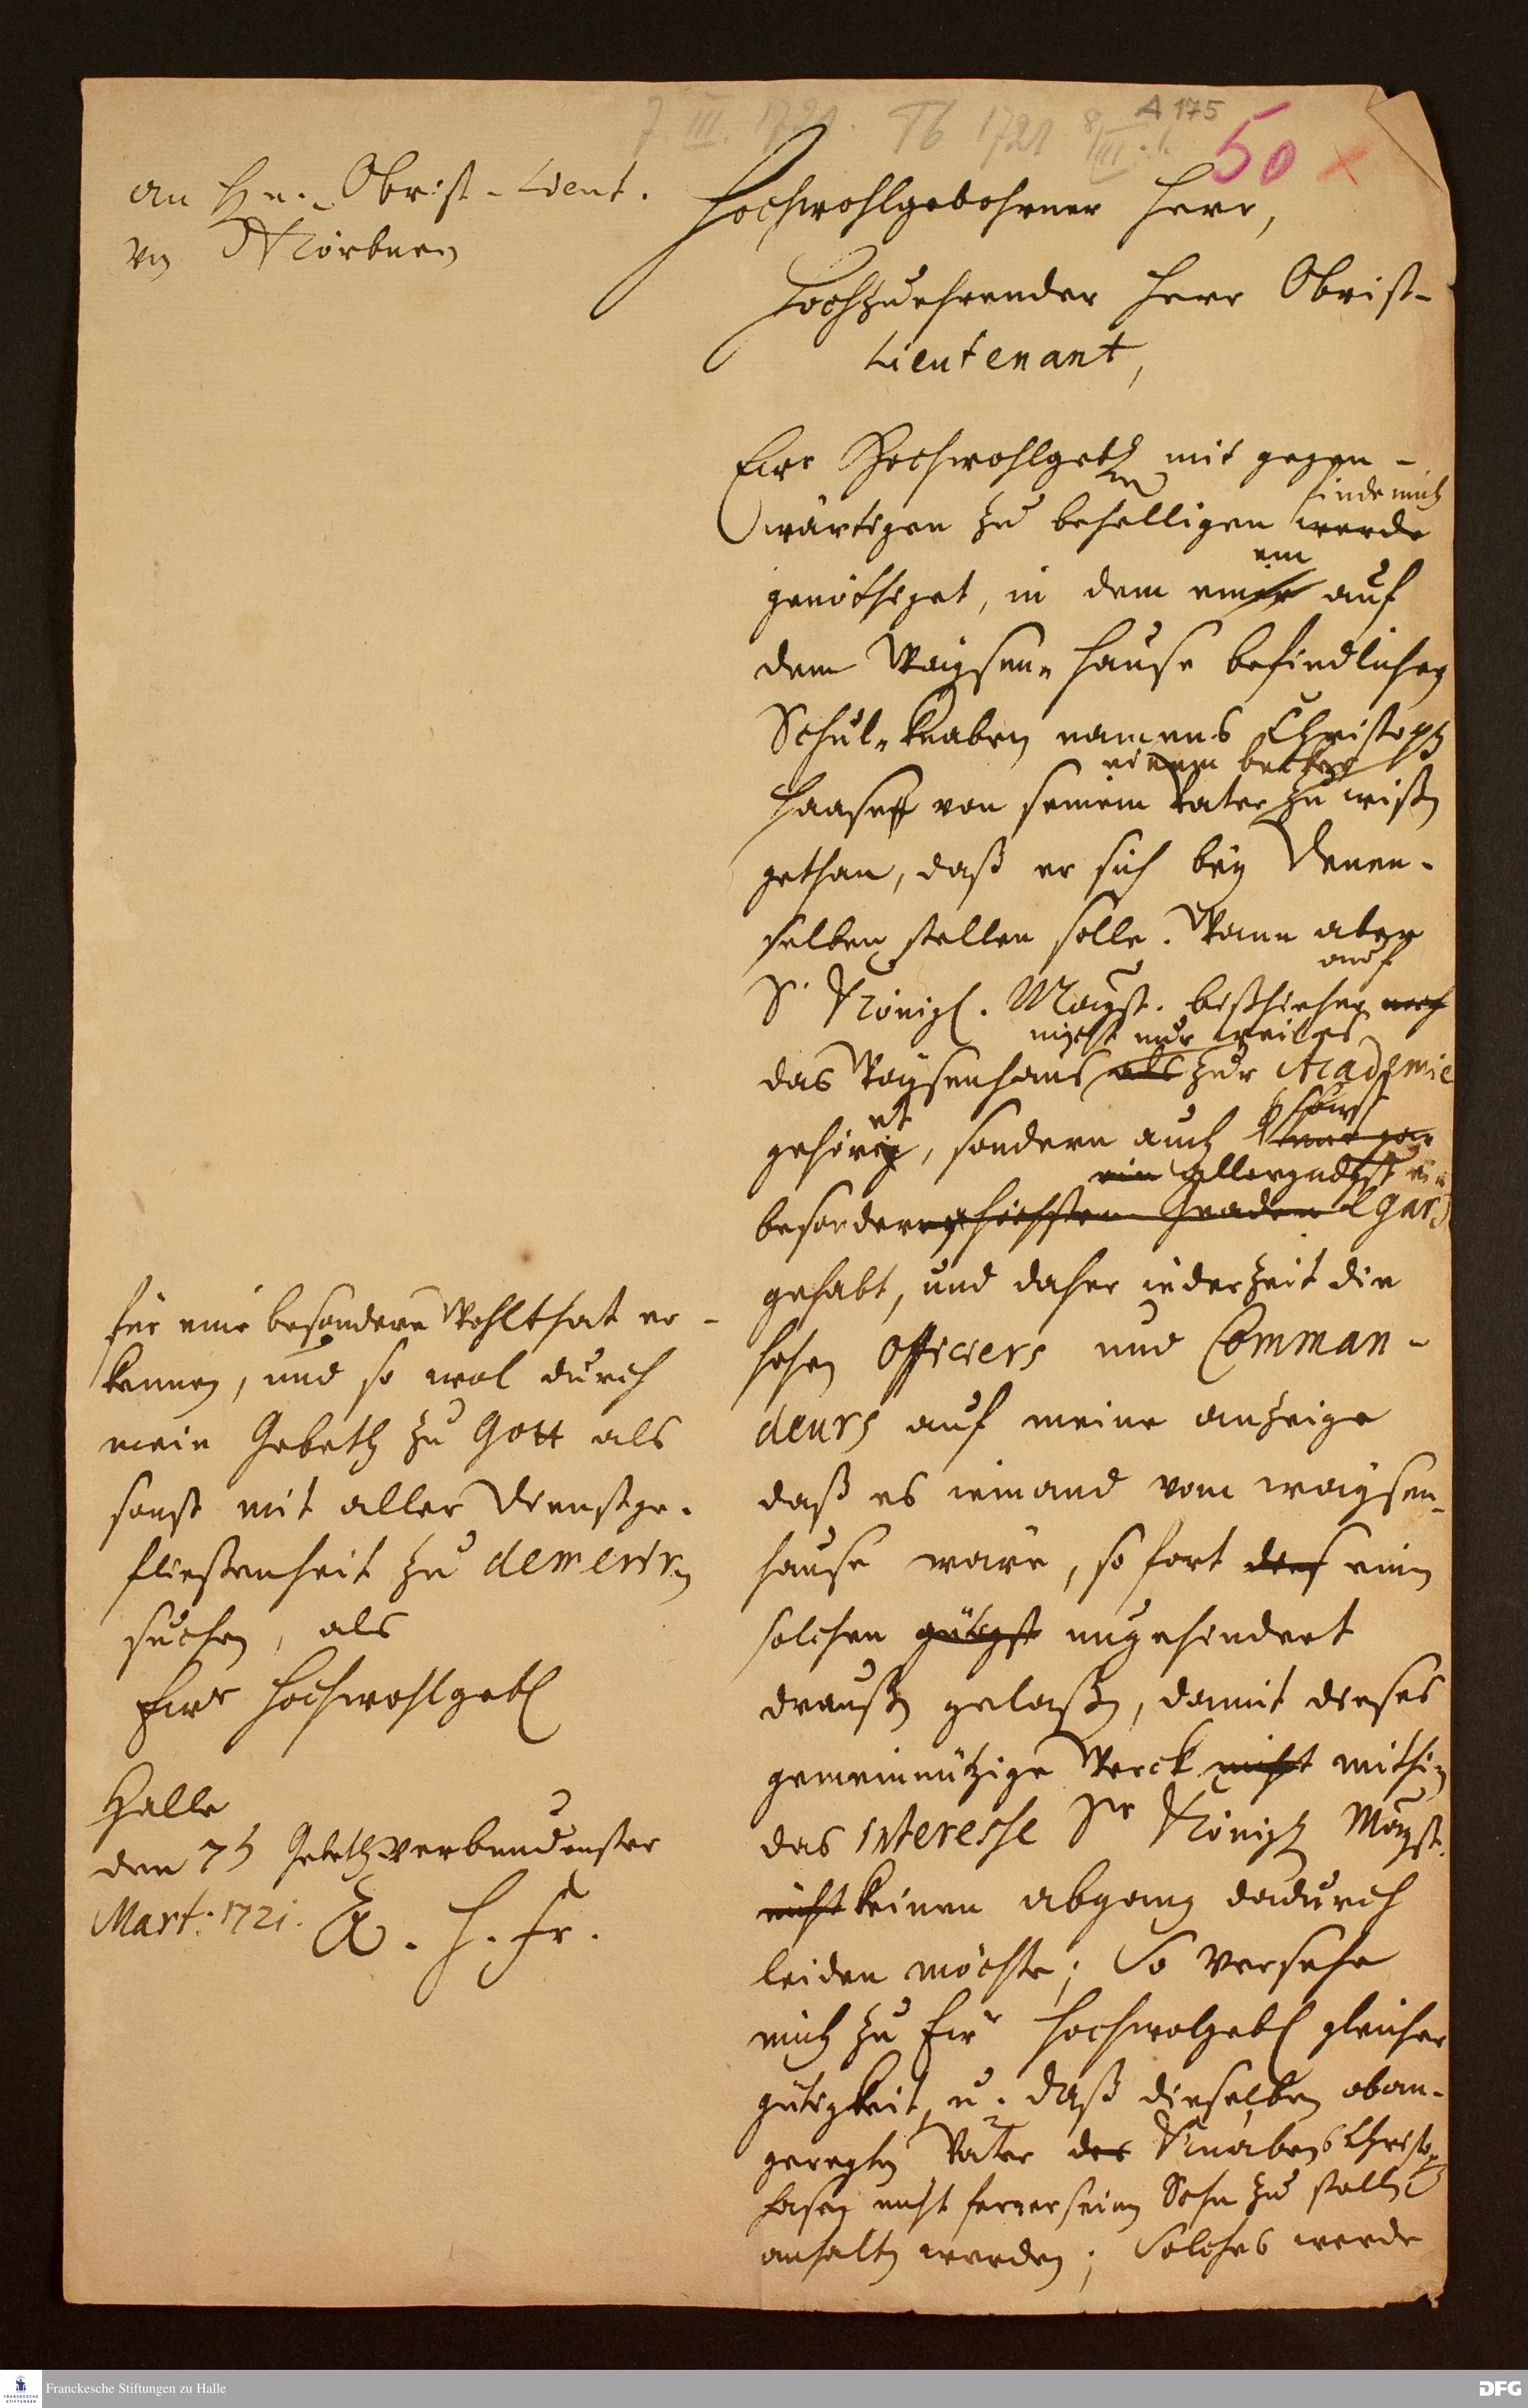 7. III. 1721. Tb 1721 8/III. A 175
50
an Hn. Obrist-Lieut.
von
Hochwohlgebohrner Herr,
Hochzuehrender Herr Obrist-
Lieutenant,
Ewr Hochwohlgeb. mit gegen-
finde mich
wärtigen zu behelligen werde
em
genöthiget, in dem einer auf
dem Waysen-Hause befindlichen
Schul-Knaben namens Christoph
einem
Haasen von seinem Vater zu wißen
gethan, daß er sich bey Denen-
selben stellen solle. Wann aber
auf
Sr. Königl. Mayst. bißhieher
nicht nur weil es
das Waysenhaus als zur Academie
et
gehörig, sondern auch
ein allergndgst
besondere höchsten Gnaden Egard
gehabt, und daher iederzeit die
hohen Officiers und Comman-
deurs auf meine anzeige
daß es iemand vom waysen-
hause wäre, so fort einen
solchen gütigst ungehindert
draußen gelaßen, damit dieses
gemeinnützige Werck nicht mithin
das Interesse Sr Königl. Mayst.
nicht keinen abgang dadurch
leiden möchte; So versehe
mich zu Ewr Hochwolgeb. gleicher
gütigkeit, u. daß dieselben oban-
geregten Vater des Knabens Christoph
Hasen nicht ferner seinen Sohn zu stellen
anhalten werden; Solches werde
für eine besondere Wohlthat er-
kennen, und so wol durch
mein Gebeth zu Gott als
sonst mit aller Dienstge-
fließenheit zu demeriren
suchen, als
Ewr Hochwohlgeb.
Halle
den 7t Gebethverbundenster
Mart. 1721. A. H. Fr.
Franckesche Stiftungen zu Halle
DFG